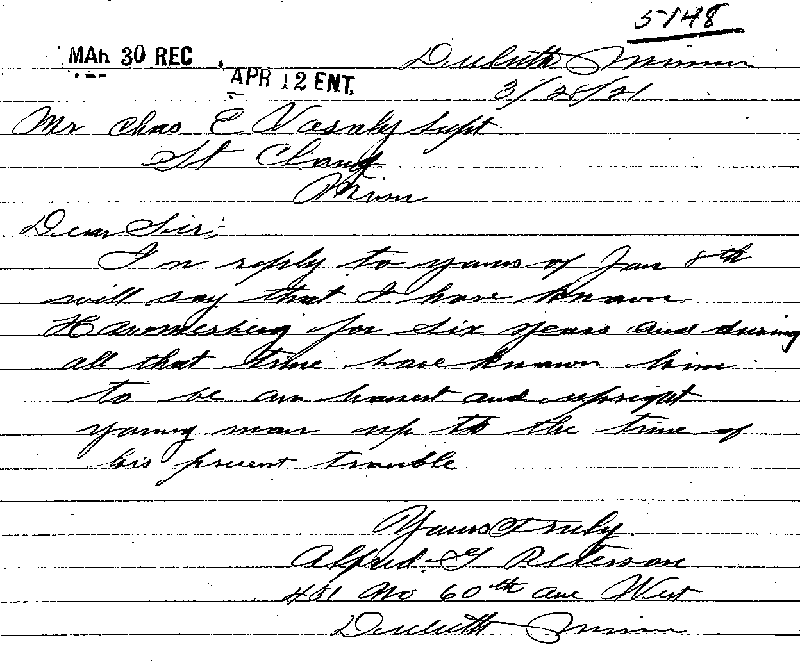 5148
MAR 30 REC
APR 12 ENT.
Duluth Minn
3/28/21
Mr Chas E Vasaly Supt
St Cloud
Minn
Dear Sir:
In reply to yours of Jan 8th
will say that I have known
for six years and during
all that time have known him
to be an honest and upright
young man up to the time of
his present trouble
Yours Truly
Alfred G Peterson
401 No 60th Ave West
Duluth Minn